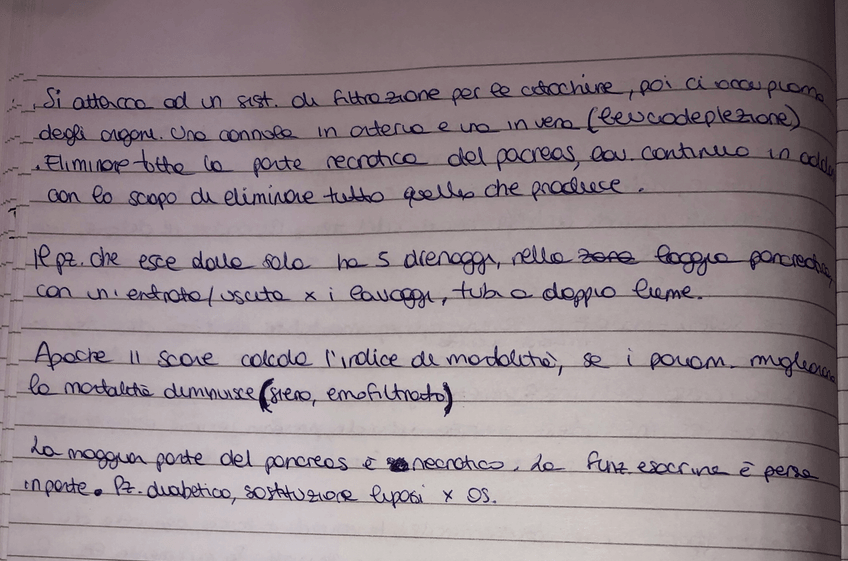 . Si attacca ad un sist. di filtrazione per le citochine, poi ci occupiamo
degli organi. Una cannula in arteria e una in vena (leucodeplezione)
. Eliminare tutta la parte necrotica del pacreas, lav. continuo in addo
con lo scopo di eliminare tutto quello che produce.
Il pz. che esce dalla sala ha 5 drenaggi, nella zona loggia pancreatica,
con un' entrata/uscita x i lavaggi, tubi a doppio lume.
Apache II score calcola l'indice di mortalità, se i param. migliorano
la mortalità diminuisce (siero, emofiltrato)
La maggior parte del pancreas è necrotico. La funz. esocrina è persa
in parte. Pz. diabetico, sostituzione lipasi x OS.